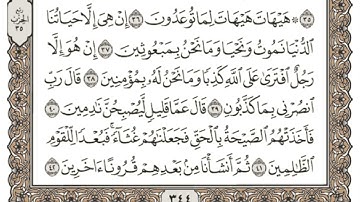 ربع
الحزب
٣٥
۝٣٥ ۞ هَيْهَاتَ هَيْهَاتَ لِمَا تُوعَدُونَ ۝٣٦ إِنْ هِىَ إِلَّا حَيَاتُنَا
ٱلدُّنْيَا نَمُوتُ وَنَحْيَا وَمَا نَحْنُ بِمَبْعُوثِينَ ۝٣٧ إِنْ هُوَ إِلَّا
رَجُلٌ ٱفْتَرَىٰ عَلَى ٱللَّهِ كَذِبًا وَمَا نَحْنُ لَهُۥ بِمُؤْمِنِينَ ۝٣٨ قَالَ رَبِّ
ٱنصُرْنِى بِمَا كَذَّبُونِ ۝٣٩ قَالَ عَمَّا قَلِيلٍ لَّيُصْبِحُنَّ نَٰدِمِينَ ۝٤٠
فَأَخَذَتْهُمُ ٱلصَّيْحَةُ بِٱلْحَقِّ فَجَعَلْنَٰهُمْ غُثَآءً ۚ فَبُعْدًا لِّلْقَوْمِ
ٱلظَّٰلِمِينَ ۝٤١ ثُمَّ أَنشَأْنَا مِنۢ بَعْدِهِمْ قُرُونًا ءَاخَرِينَ ۝٤٢
٣٤٤